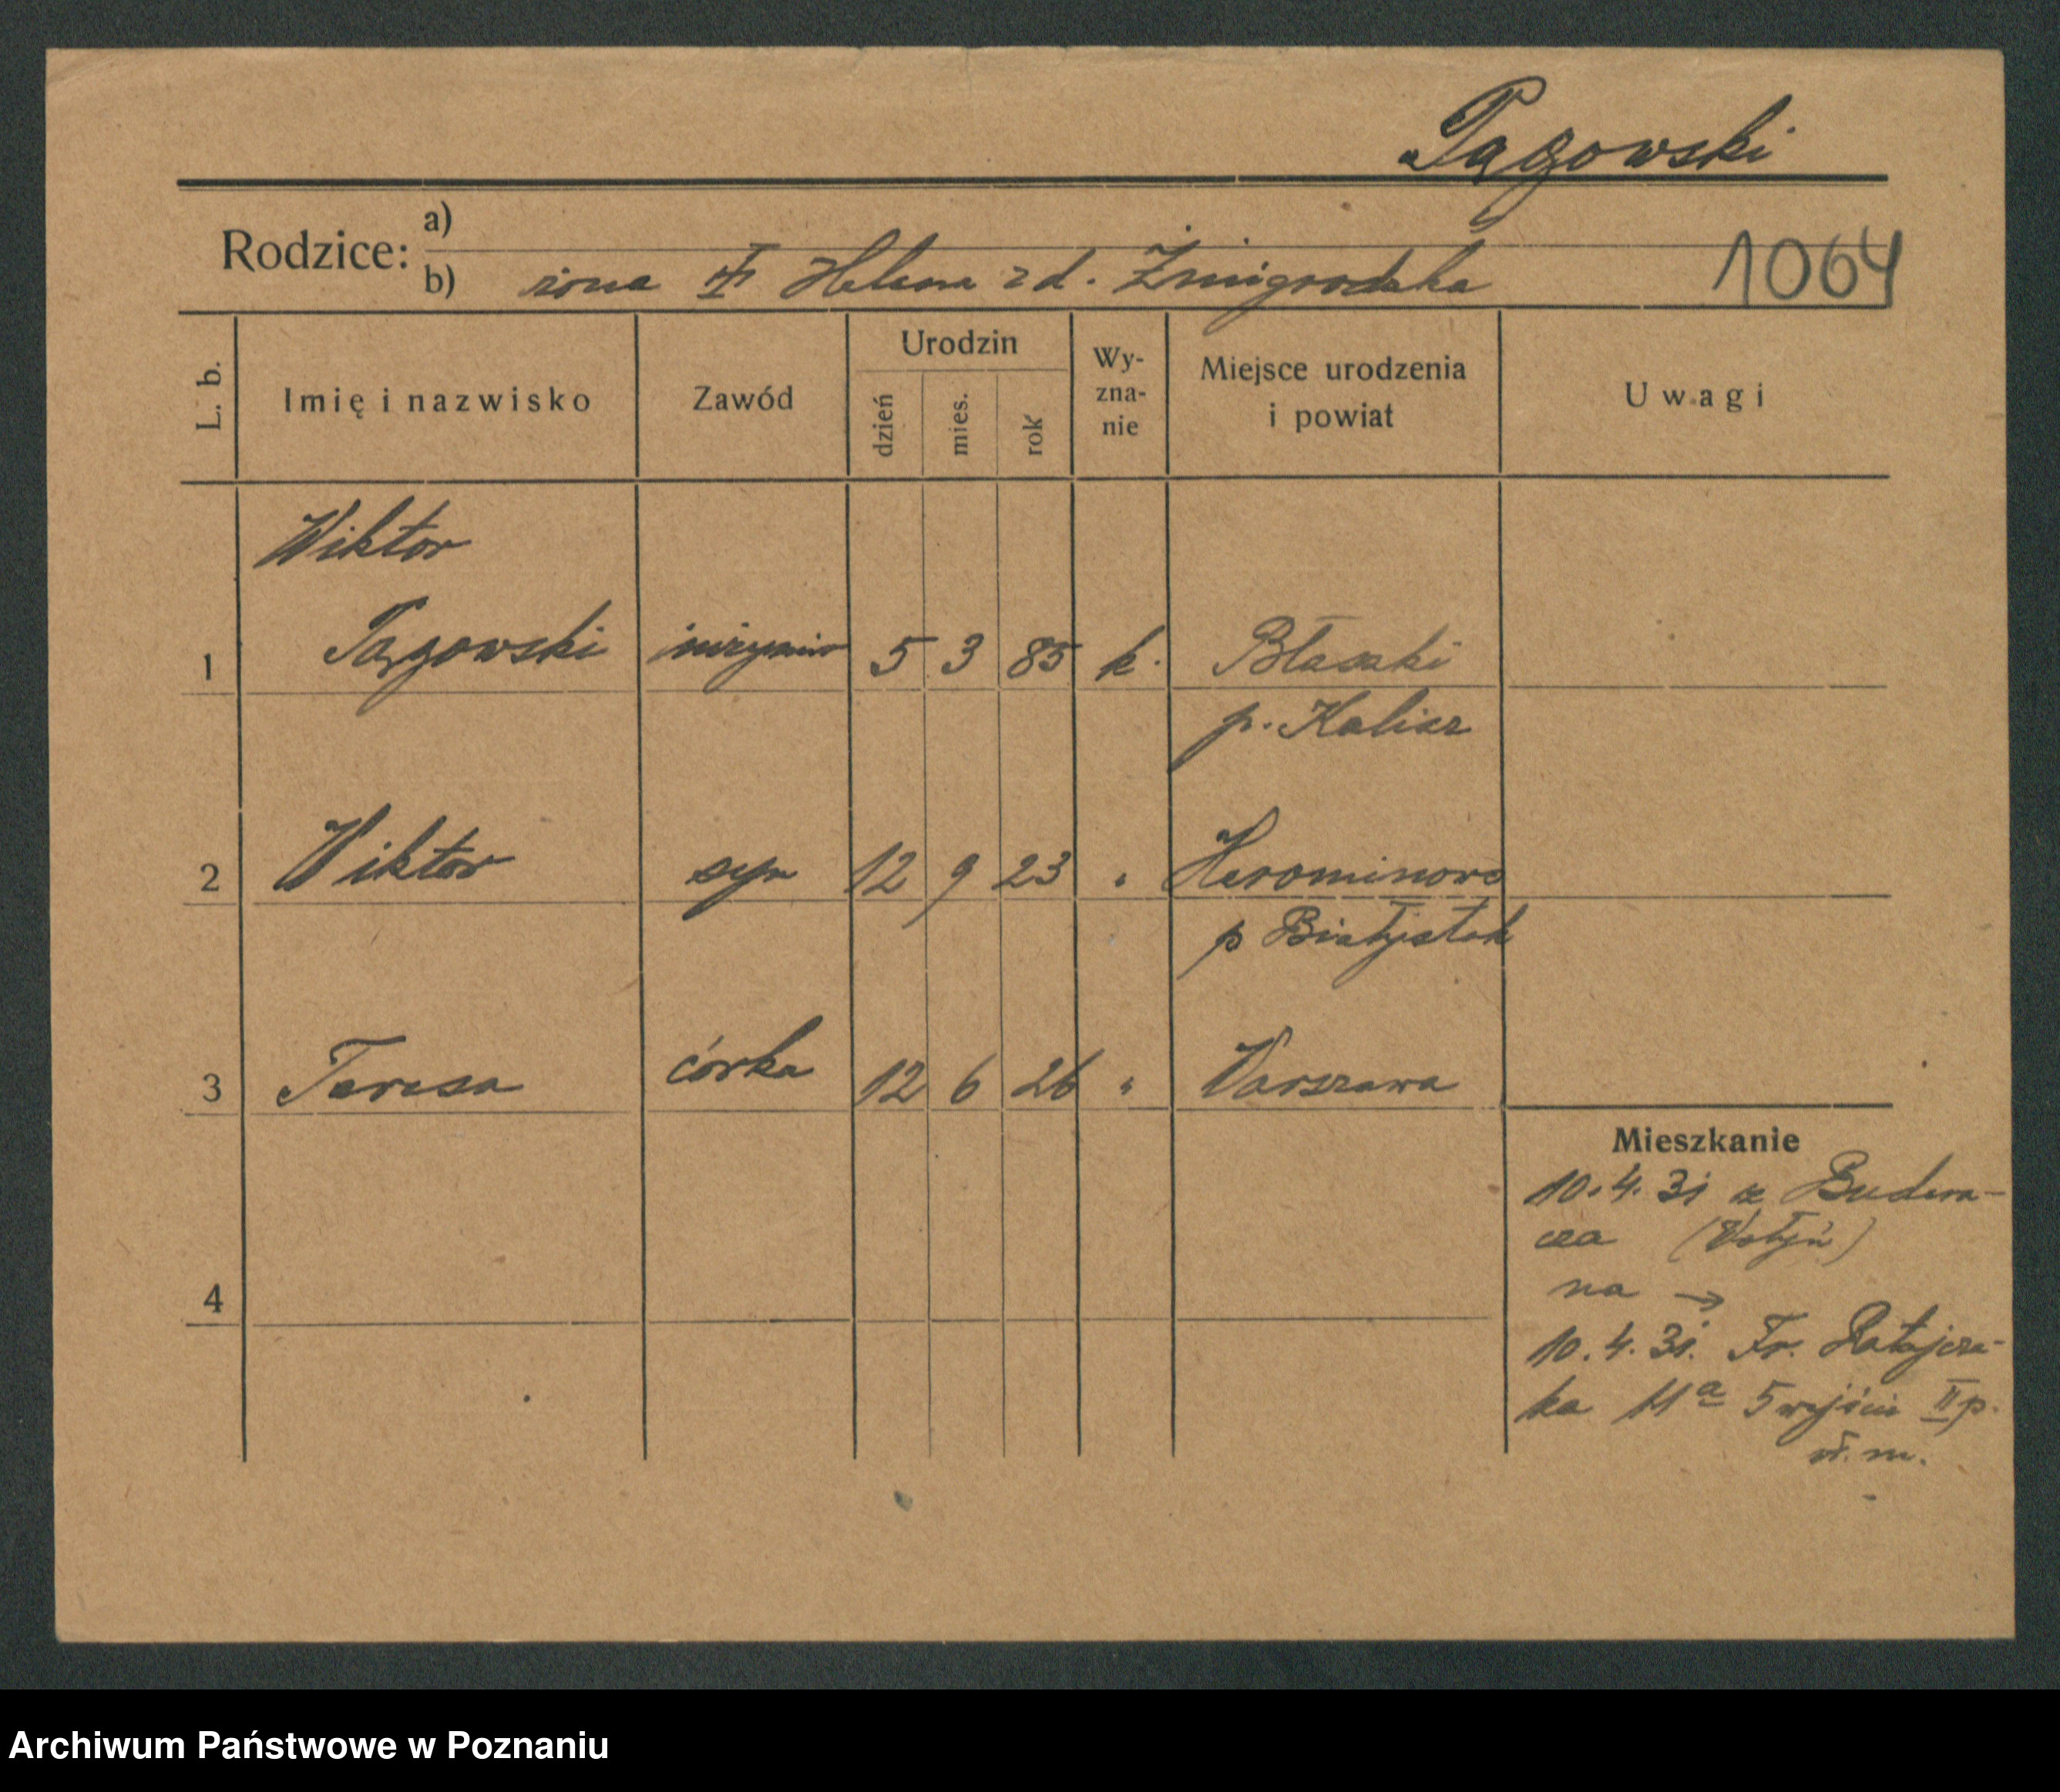 Pągowski
Rodzice: a)
b) żona Helena z d. Żmigrodzka
1064
L. b.
Imię i nazwisko
Zawód
Urodzin
dzień
mies.
rok
Wy-
zna-
nie
Miejsce urodzenia
i powiat
Uwagi
Wiktor
1 Pągowski inżynier 5 3 85 k. Błaszki
p. Kalisz
2 Wiktor syn 12 9 23 "
p Białystok
3 Teresa córka 12 6 26 " Warszawa
Mieszkanie
10.4.31 z Budera-
cza (Wołyń)
na →
4
10.4.31. Fr. Ratajcza-
ka 11a 5 wejście II p.
wł. m.
Archiwum Państwowe w Poznaniu